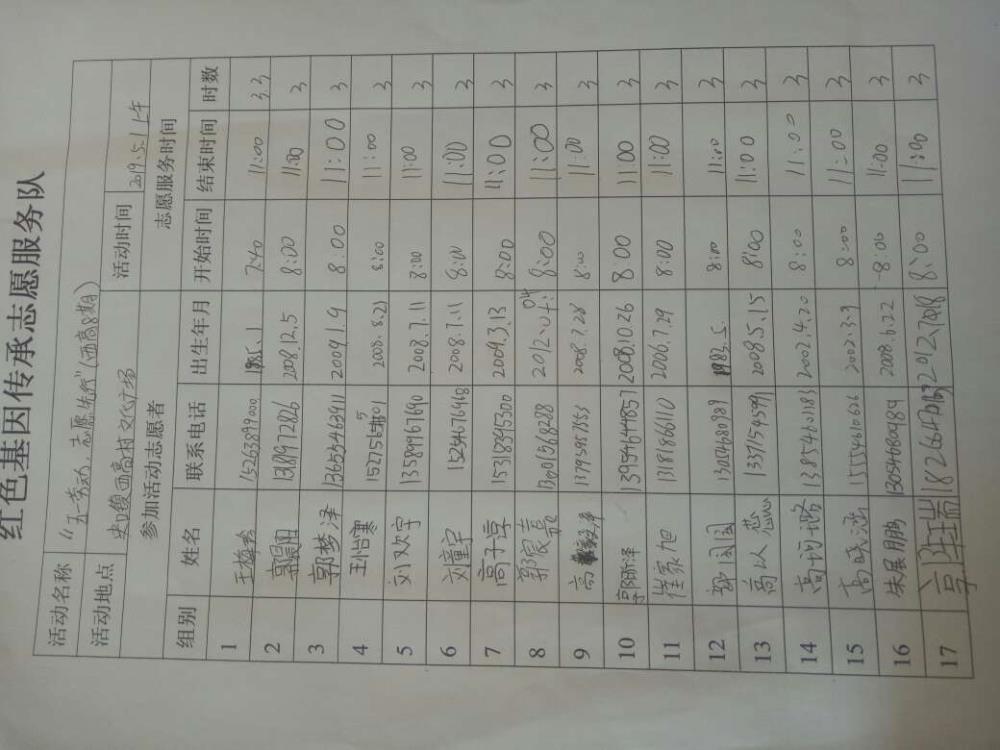 红色基因传承志愿服务队
活动名称 "五一劳动,志愿先行"(西高8期) 活动时间 2019.5.1上午
活动地点 史口镇西高村文化广场
参加活动志愿者 志愿服务时间
组别 姓名 联系电话 出生年月 开始时间 结束时间 时数
1 15263899000 7:40 11:00
2 2008.12.5 8:00 11:00 3
3 郭梦泽 13655463911 2009.1.9 8:00 11:00 3
4 王怡寒 2008.8.21 8:00 11:00 3
5 刘欢宇 13589967690 2008.7.11 8:00 11:00 3
6 刘童宇 15254676968 2008.7.11 8:00 11:00 3
7 高子淳 15318395300 2009.3.13 8:00 11:00 3
8 郭宸嘉 8:00 11:00 3
9 高 2008.7.28 8:00 11:00 3
10 13954644857 2008.10.26 8:00 11:00 3
11 崔家旭 13181866110 2006.7.29 8:00 11:00 3
12 13054680989 1983.5. 8:00 11:00 3
13 高以慈 13371545099 2008.5.15 8:00 11:00 3
14 13855460183 2002.4.20 8:00 11:00 3
15 15554610626 2002.3.9 8:00 11:00 3
16 朱展鹏 13054680989 2008.6.22 8:00 11:00 3
17 8:00 11:00 3